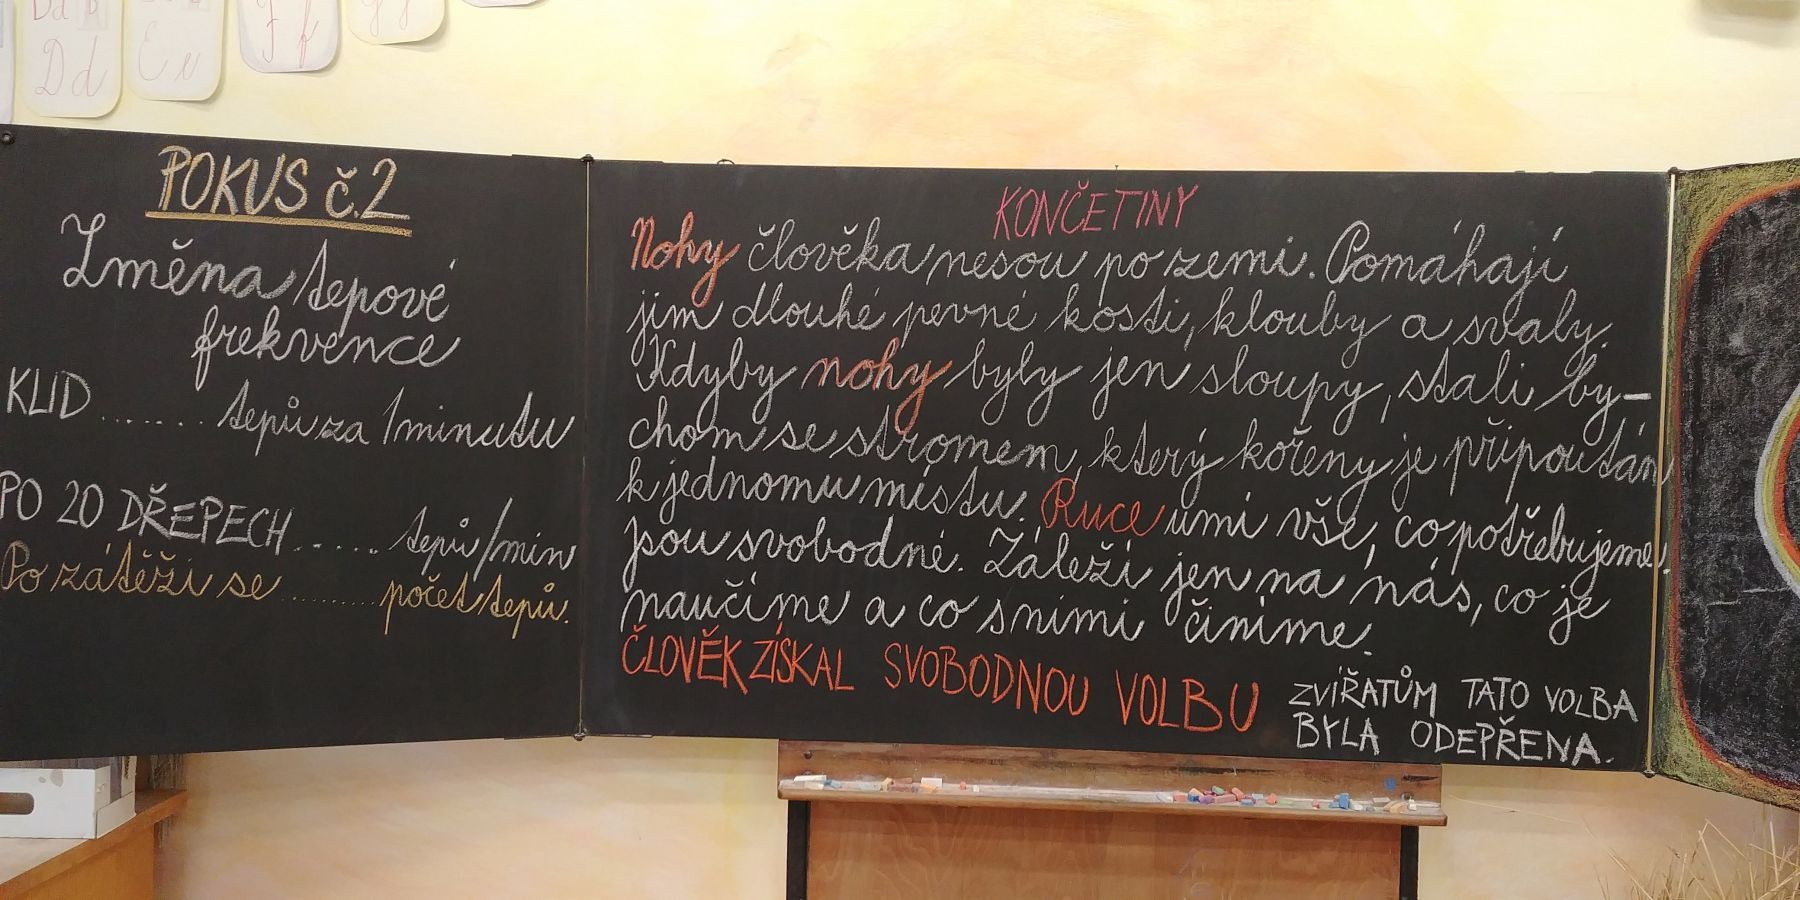 Dd
D d
E e
F f
POKUS č.2
Změna tepové
frekvence
KLID ....... tepů za 1 minutu
PO 20 DŘEPECH ...... tepů/min
Po zátěži se .......... počet tepů.
KONČETINY
Nohy člověka nesou po zemi. Pomáhají
jim dlouhé pevné kosti, klouby a svaly.
Kdyby nohy byly jen sloupy, stali by-
chom se stromem, který kořeny je připoután
k jednomu místu. Ruce umí vše, co potřebujeme.
Jsou svobodné. Záleží jen na nás, co je
naučíme a co s nimi činíme.
ČLOVĚK ZÍSKAL SVOBODNOU VOLBU
ZVÍŘATŮM TATO VOLBA
BYLA ODEPŘENA.